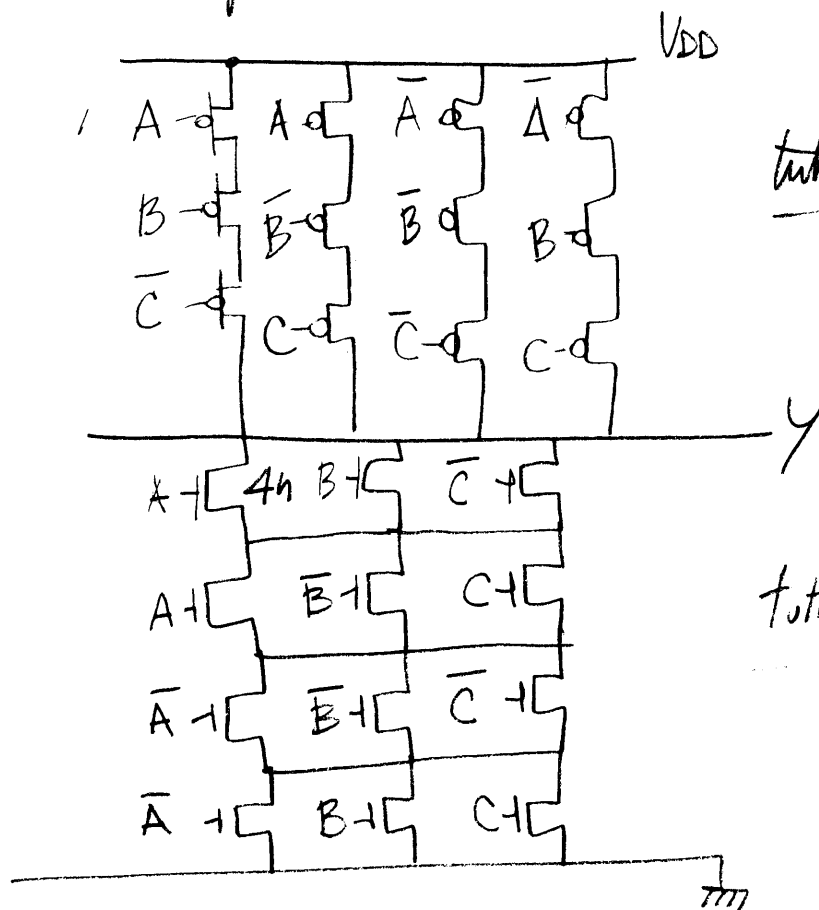 VDD
A A A̅ A̅
B B̅ B̅ B
C̅ C C̅ C
Y
A 4n B C̅
A B̅ C
A̅ B̅ C̅
A̅ B C